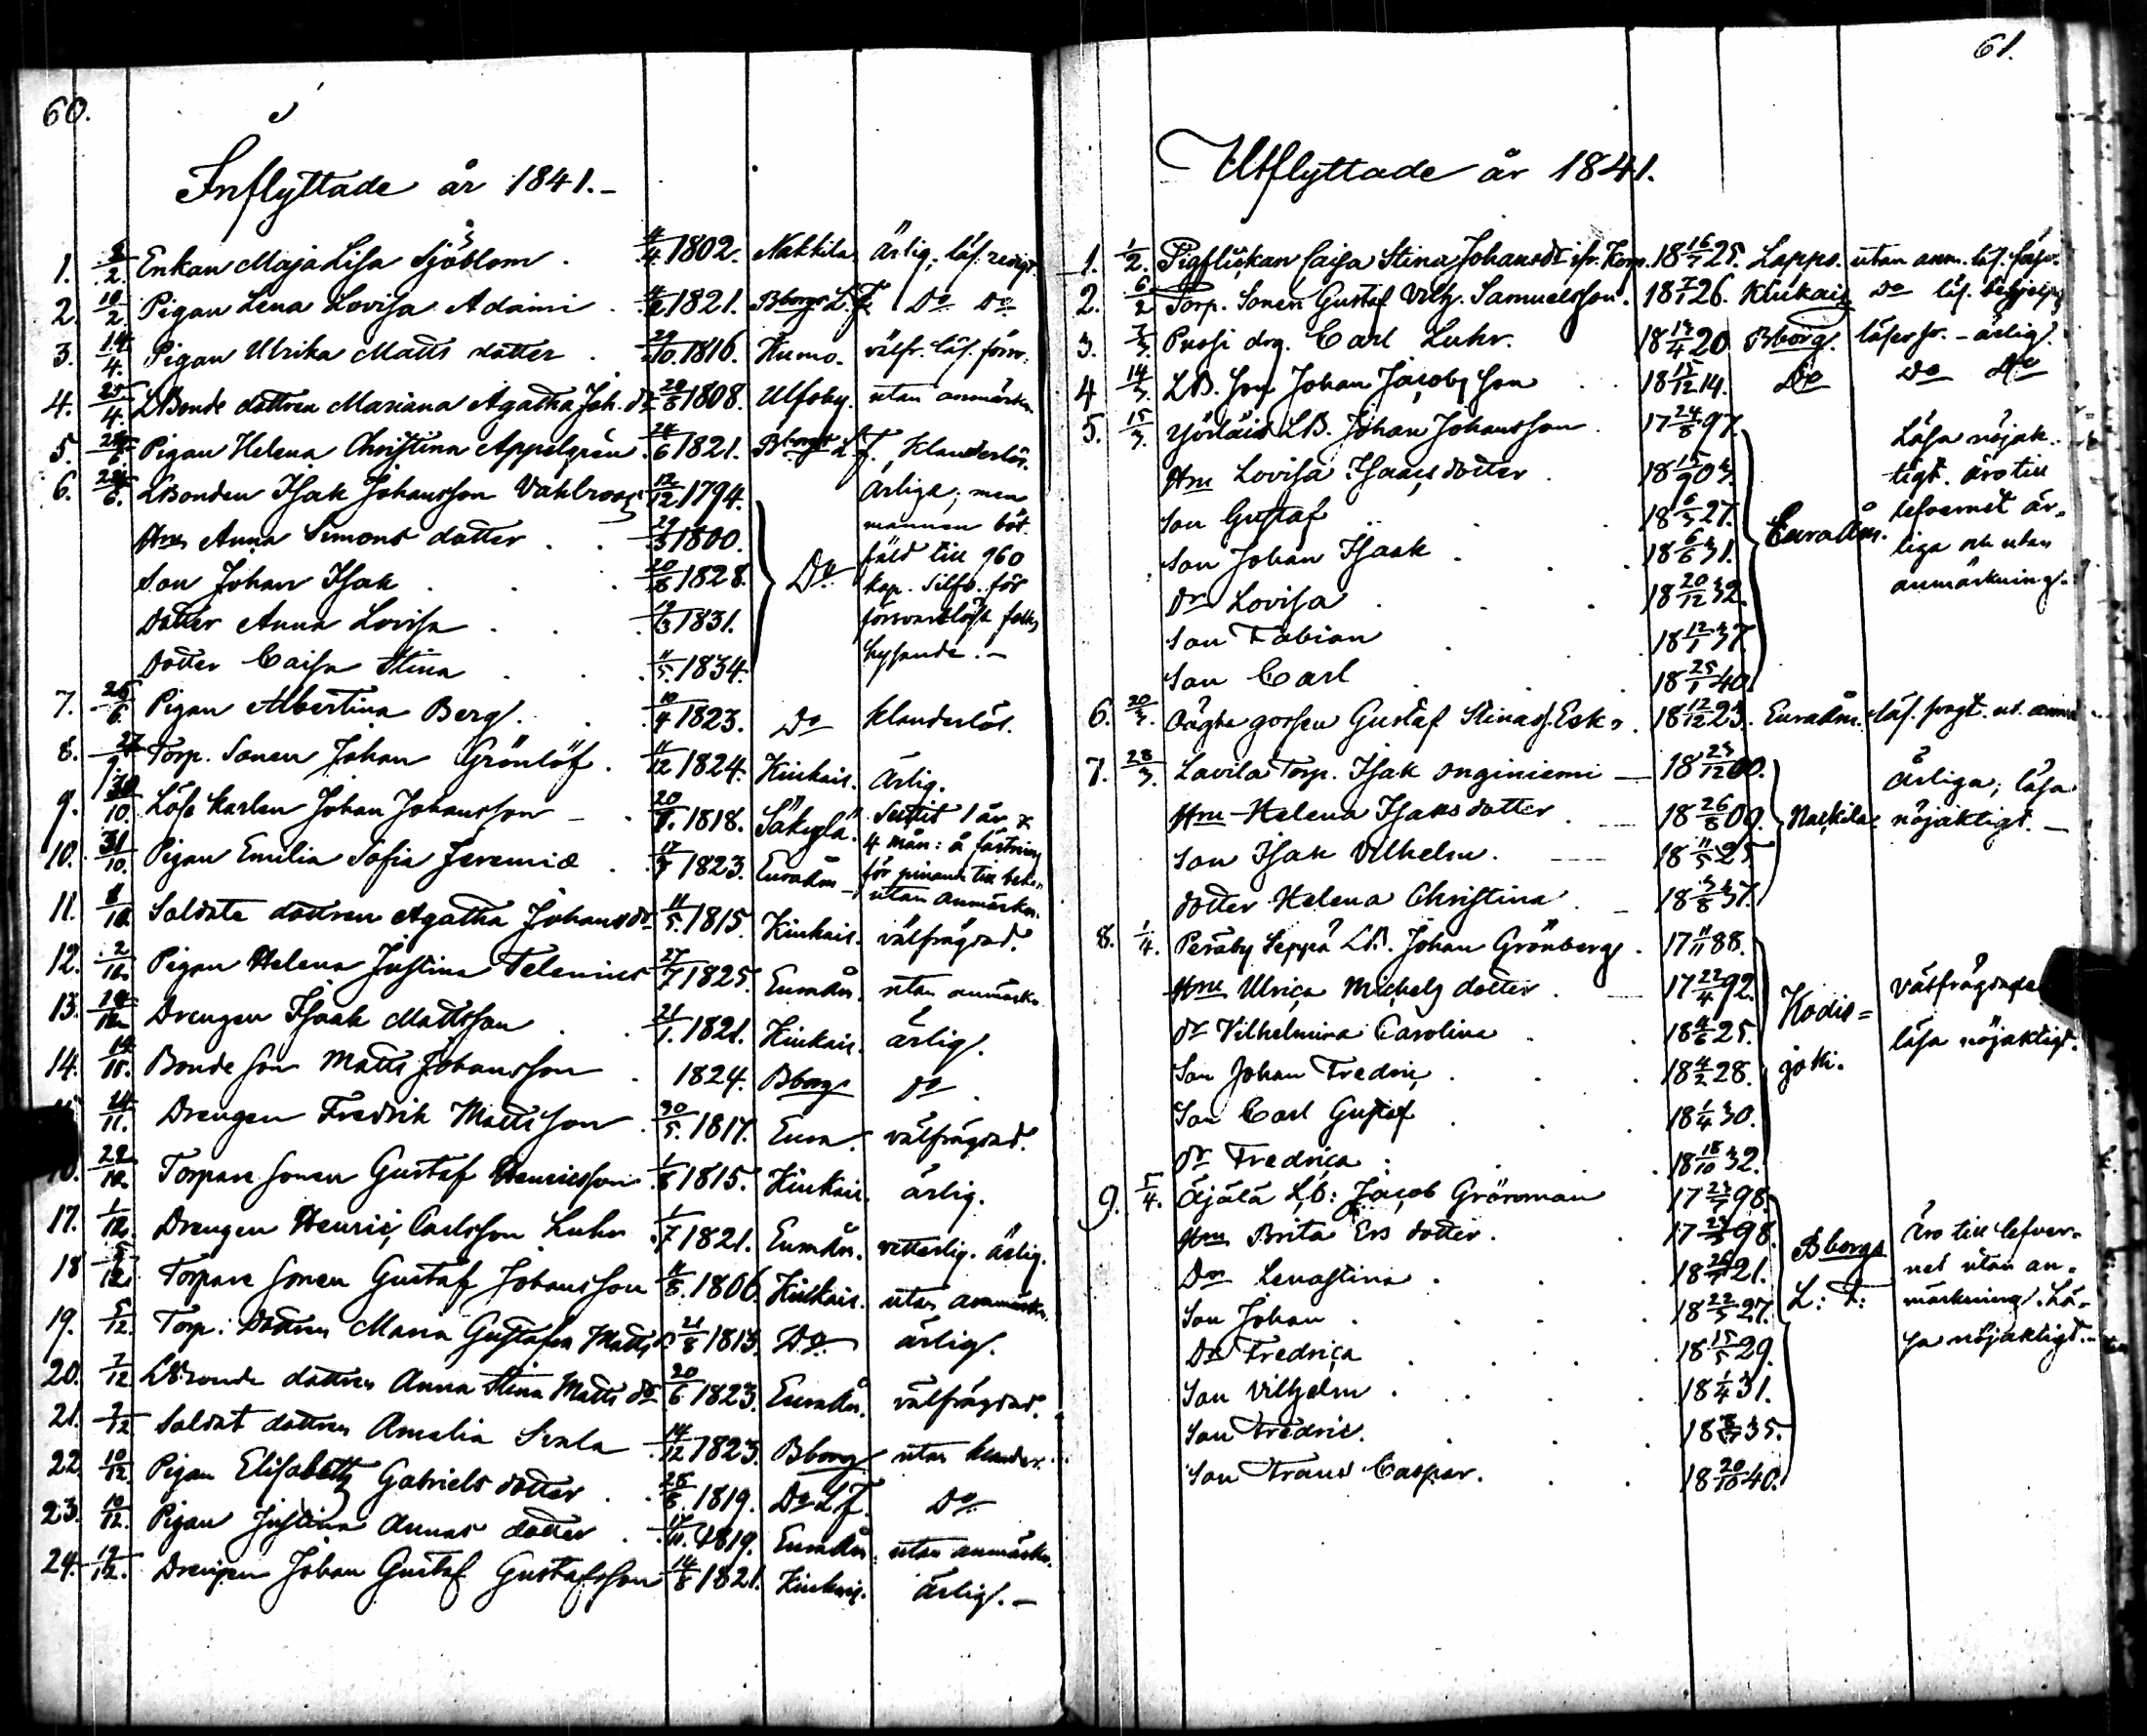 60.
Inflyttade år 1841.-
1. 2/2. Enkan Maja Lisa Sjöblom . 4/4. 1802. Nakkila ärlig; läs. redigt.
2. 10/2. Pigan Lena Lovisa Adami . 1821. Bborgs L.F. Do Do
3. 14/4. Pigan Ulrika Matts dotter . 29/10. 1816. Kumo. välfr. läs.försv.
4. 25/4. LBonde dottren Mariana Agatha Joh. dr 20/8 1808. Ulfsby. utan anmärkn.
5. Pigan Helena Christina Appelgrén . 24/6 1821. Bborgs L.F. Klanderlös.
6. LBonden Isak Johansson Vahlroos 12/12 1794. Do ärliga; men
Hru Anna Simons dotter . . 29/3 1800. mannen böt-
Son Johan Isak . . . 20/8 1828. fäld till 960
Dotter Anna Lovisa . . . 19/3 1831. kop. Silfv. för
Dotter Caisa Stina . . . 11/5. 1834. försvarslöst folks
hysande.-
7. 26/6. Pigan Albertina Berg. . . 10/4 1823. Do klanderlös.
8. 27/9. Torp. Sonen Johan Grönlöf . 11/12 1824. Kiukais. Ärlig.
9. 30/10. Löse karlen Johan Johansson - . 20/9. 1818. Säkylä. Suttit 1 år &
4 mån: å fästning
10. 31/10. Pigan Emilia Sofia Jeremiæ . 17/7 1823. Euraåm-
utan anmärkn.
11. 8/10. Soldats dottren Agatha Johansdr 11/5. 1815. Kiukais. välfrägdad.
12. 2/10. Pigan Helena Justina Telenius 27/7 1825. Euraåm. utan anmärkn.
13. Drengen Isaak Mattsson . . 21/1. 1821. Kiukais. ärlig.
14. Bonde Son Matts Johansson . 1824. Bborg Do
24/11. Drengen Fredrik Mattsson . 30/5. 1817. Eura. välfrägdad.
Torpare Sonen Gustaf Henricsson . 1/8 1815. Kiukais. ärlig.
17. 1/12. Drengen Henric Carlsson Luhr 1/7 1821. Euraåm. vetterlig. ärlig.
18 5/12. Torpare Sonen Gustaf Johansson 11/8. 1806. Kiukais. utan anmärkn.
19. 5/12. Torp: Dottren Maria Gustafva Matts dr 21/8 1813. Do ärlig.
20. 7/12 LBonde dottren Anna Stina Matts dr 20/6 1823. Euraåm. välfrägdad.
21. 7/12 Soldat dottren Amalia Svala . 14/12 1823. Bborg utan klander.
22 10/12. Pigan Elisabeth Gabriels dotter . . 1819. Do L.F. Do
23. 10/12. Pigan Justina Annas dotter . 1819. Euraåm. utan anmärkn.
24. 19/12. Drengen Johan Gustaf Gustafsson 14/8 1821. Kiukais. ärlig.-
61.
Utflyttade år 1841.
1. 1/2. Pigflickan Caisa Stina Johansdr ifr. Kom. 18 16/7 25. Lappo. utan anm. läs. försv.
2. 6/2 Torp. Sonen Gustaf Vilh. Samuelsson. 18 7/1 26. Kiukais Do läs.
3. 7/3. Puosi drg. Carl Luhr. 18 13/4 20. Bborg. läser fr. - ärlig.
4 14/3. LB. Son Johan Jacobsson . . 18 15/12 14. Do Do Do
5. 15/3. LB. Johan Johansson . 17 24/8 97. Euraåm. Läsa nöjak-
Hru Lovisa Isaacs dotter . 18 15/9 03. tigt. äro till
Son Gustaf . . . 18 6/3 27. lefvernet är-
Son Johan Isaak . . 18 6/6 31. liga och utan
Dr Lovisa . . . 18 20/12 32. anmärkning.
Son Fabian . . 18 12/1 37.
Son Carl . . 18 25/1 40.
6. 20/3. gossen Gustaf Stinas. Esk. . 18 12/12 23. Euraåm.
7. 28/3. Lavila Torp. Isak Onginiemi - 18 23/12 00. Nackila. ärliga; läsa
Hru Helena Isaks dotter . 18 26/8 09. nöjaktigt.-
Son Isak Vilhelm. 18 11/5 25
dotter Helena Christina . - 18 3/8 37.
8. 1/4. Peräby Seppä LB. Johan Grönberg . 17 11/11 88. Kodis=
Hru Ulrica Michels dotter . 17 22/4 92. joki. välfrägdade
Dr Vilhelmina Carolina . 18 4/6 25. läsa nöjaktigt.
Son Johan Fredric . . . 18 4/2 28.
Son Carl Gustaf . . . 18 1/4 30.
Dr Fredrica . . . 18 18/10 32.
9. 5/4. Äjälä LB: Jacob Grönman 17 23/7 98. Bborgs
Hru Brita Ers dotter . 17 98. L: F: Äro till lefver-
Dr Lenastina . . . 18 21. net utan an-
Son Johan . . . 18 22/3 27. märkning. Lä-
Dr Fredrica . . . 18 15/5 29. sa nöjaktigt.-
Son Vilhelm . . . 18 1/4 31.
Son Fredric. . . 18 35.
Son Frans Caspar. . . 18 20/10 40.